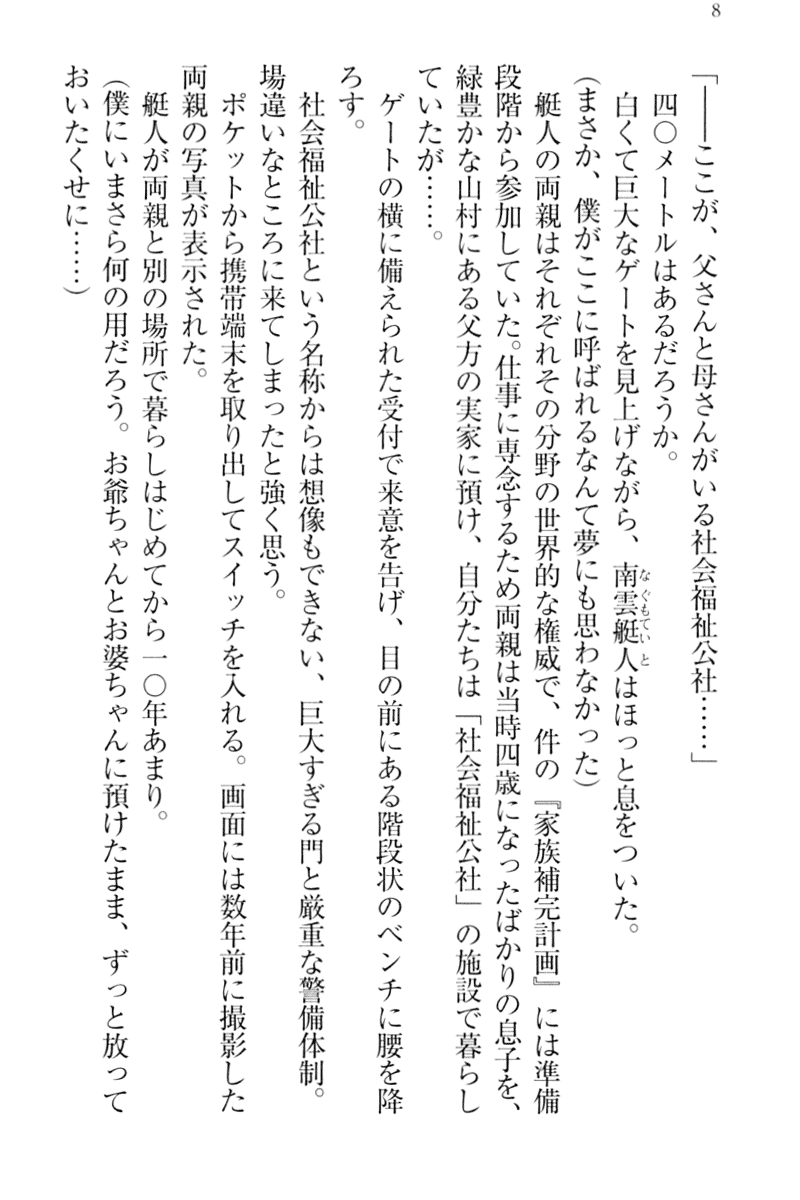 8
「――ここが、父さんと母さんがいる社会福祉公社……」
四〇メートルはあるだろうか。
白くて巨大なゲートを見上げながら、南雲艇人はほっと息をついた。
なぐもていと
(まさか、僕がここに呼ばれるなんて夢にも思わなかった)
艇人の両親はそれぞれその分野の世界的な権威で、件の『家族補完計画』には準備
段階から参加していた。仕事に専念するため両親は当時四歳になったばかりの息子を、
緑豊かな山村にある父方の実家に預け、自分たちは「社会福祉公社」の施設で暮らし
ていたが……。
ゲートの横に備えられた受付で来意を告げ、目の前にある階段状のベンチに腰を降
ろす。
社会福祉公社という名称からは想像もできない、巨大すぎる門と厳重な警備体制。
場違いなところに来てしまったと強く思う。
ポケットから携帯端末を取り出してスイッチを入れる。画面には数年前に撮影した
両親の写真が表示された。
艇人が両親と別の場所で暮らしはじめてから一〇年あまり。
(僕にいまさら何の用だろう。お爺ちゃんとお婆ちゃんに預けたまま、ずっと放って
おいたくせに……)